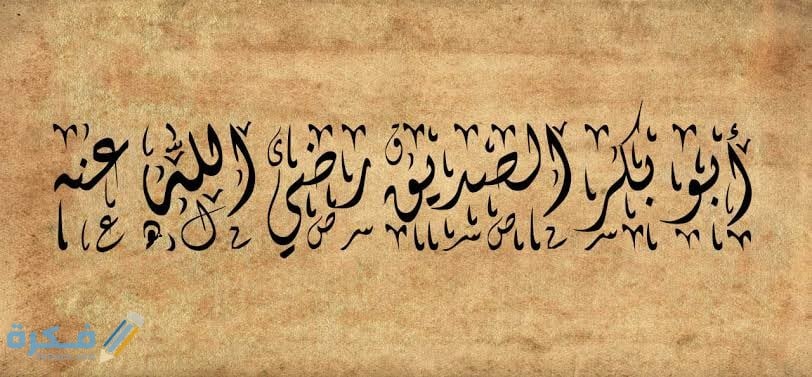 أبو بكر الصديق رضي الله عنه
فكرة